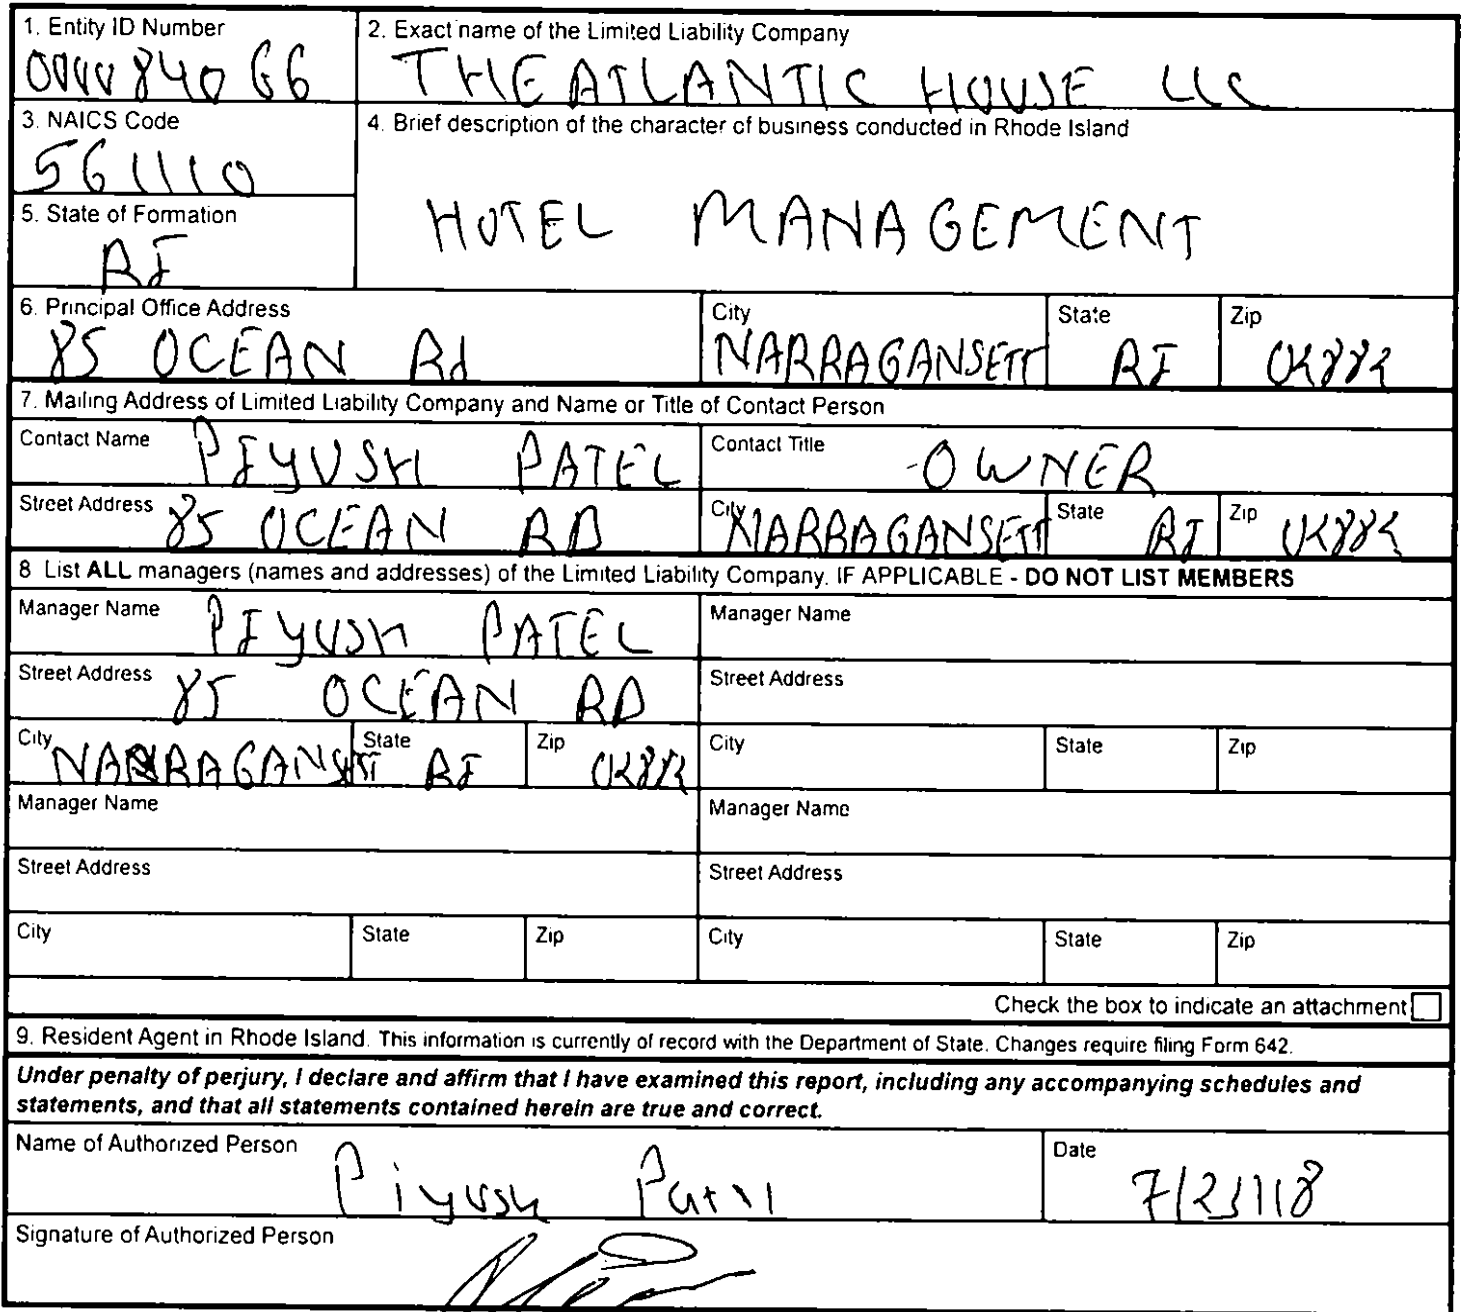 1. Entity ID Number
000084066
2. Exact name of the Limited Liability Company
THE ATLANTIC HOUSE LLC
3. NAICS Code
561110
4. Brief description of the character of business conducted in Rhode Island
HOTEL MANAGEMENT
5. State of Formation
RI
6. Principal Office Address
85 OCEAN Rd
City
NARRAGANSETT
State
RI
Zip
02882
7. Mailing Address of Limited Liability Company and Name or Title of Contact Person
Contact Name PIYUSH PATEL
Contact Title OWNER
Street Address 85 OCEAN RD
City NARRAGANSETT
State RI
Zip 02882
8 List ALL managers (names and addresses) of the Limited Liability Company. IF APPLICABLE - DO NOT LIST MEMBERS
Manager Name PIYUSH PATEL
Manager Name
Street Address 85 OCEAN RD
Street Address
City NARRAGANSETT
State RI
Zip 02882
City
State
Zip
Manager Name
Manager Name
Street Address
Street Address
City
State
Zip
City
State
Zip
Check the box to indicate an attachment
9. Resident Agent in Rhode Island. This information is currently of record with the Department of State. Changes require filing Form 642.
Under penalty of perjury, I declare and affirm that I have examined this report, including any accompanying schedules and
statements, and that all statements contained herein are true and correct.
Name of Authorized Person
Piyush Patel
Date
7/23/18
Signature of Authorized Person